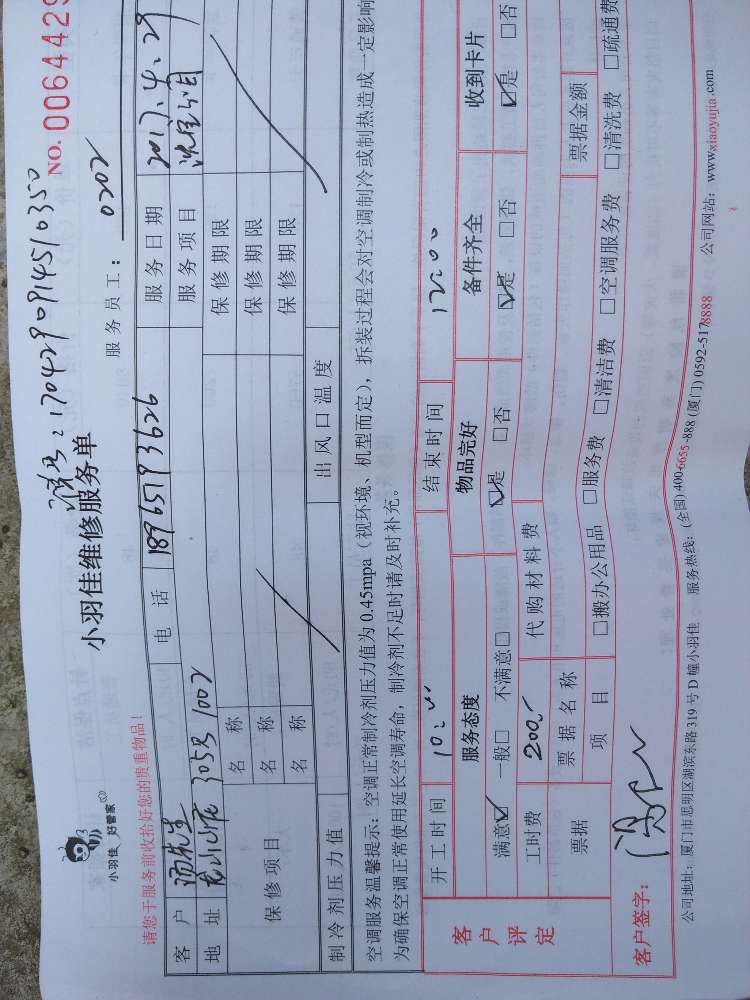 小羽佳 好管家
小羽佳维修服务单
1704290914510350
NO. 0064429
请您于服务前收拾好您的贵重物品！
服务员工： 0202
客户 汤先生 电话 18965193626 服务日期 2017.4.29
地址 305号1002 服务项目
保修项目 名称 保修期限
名称 保修期限
名称 保修期限
制冷剂压力值 出风口温度
空调服务温馨提示：空调正常制冷剂压力值为0.45mpa（视环境、机型而定），拆装过程会对空调制冷或制热造成一定影响
为确保空调正常使用延长空调寿命，制冷剂不足时请及时补充。
开工时间 10:00 结束时间 12:00
客户评定 服务态度 物品完好 备件齐全 收到卡片
满意☑ 一般□ 不满意□ ☑是 □否 ☑是 □否 ☑是 □否
工时费 200 代购材料费
票据 票据名称 票据金额
项目 □搬办公用品 □服务费 □清洁费 □空调服务费 □清洗费 □疏通费
客户签字：
公司地址：厦门市思明区湖滨东路319号D幢小羽佳 服务热线：(全国) 400-6655-888 (厦门) 0592-5178888 公司网站：www.xiaoyujia.com